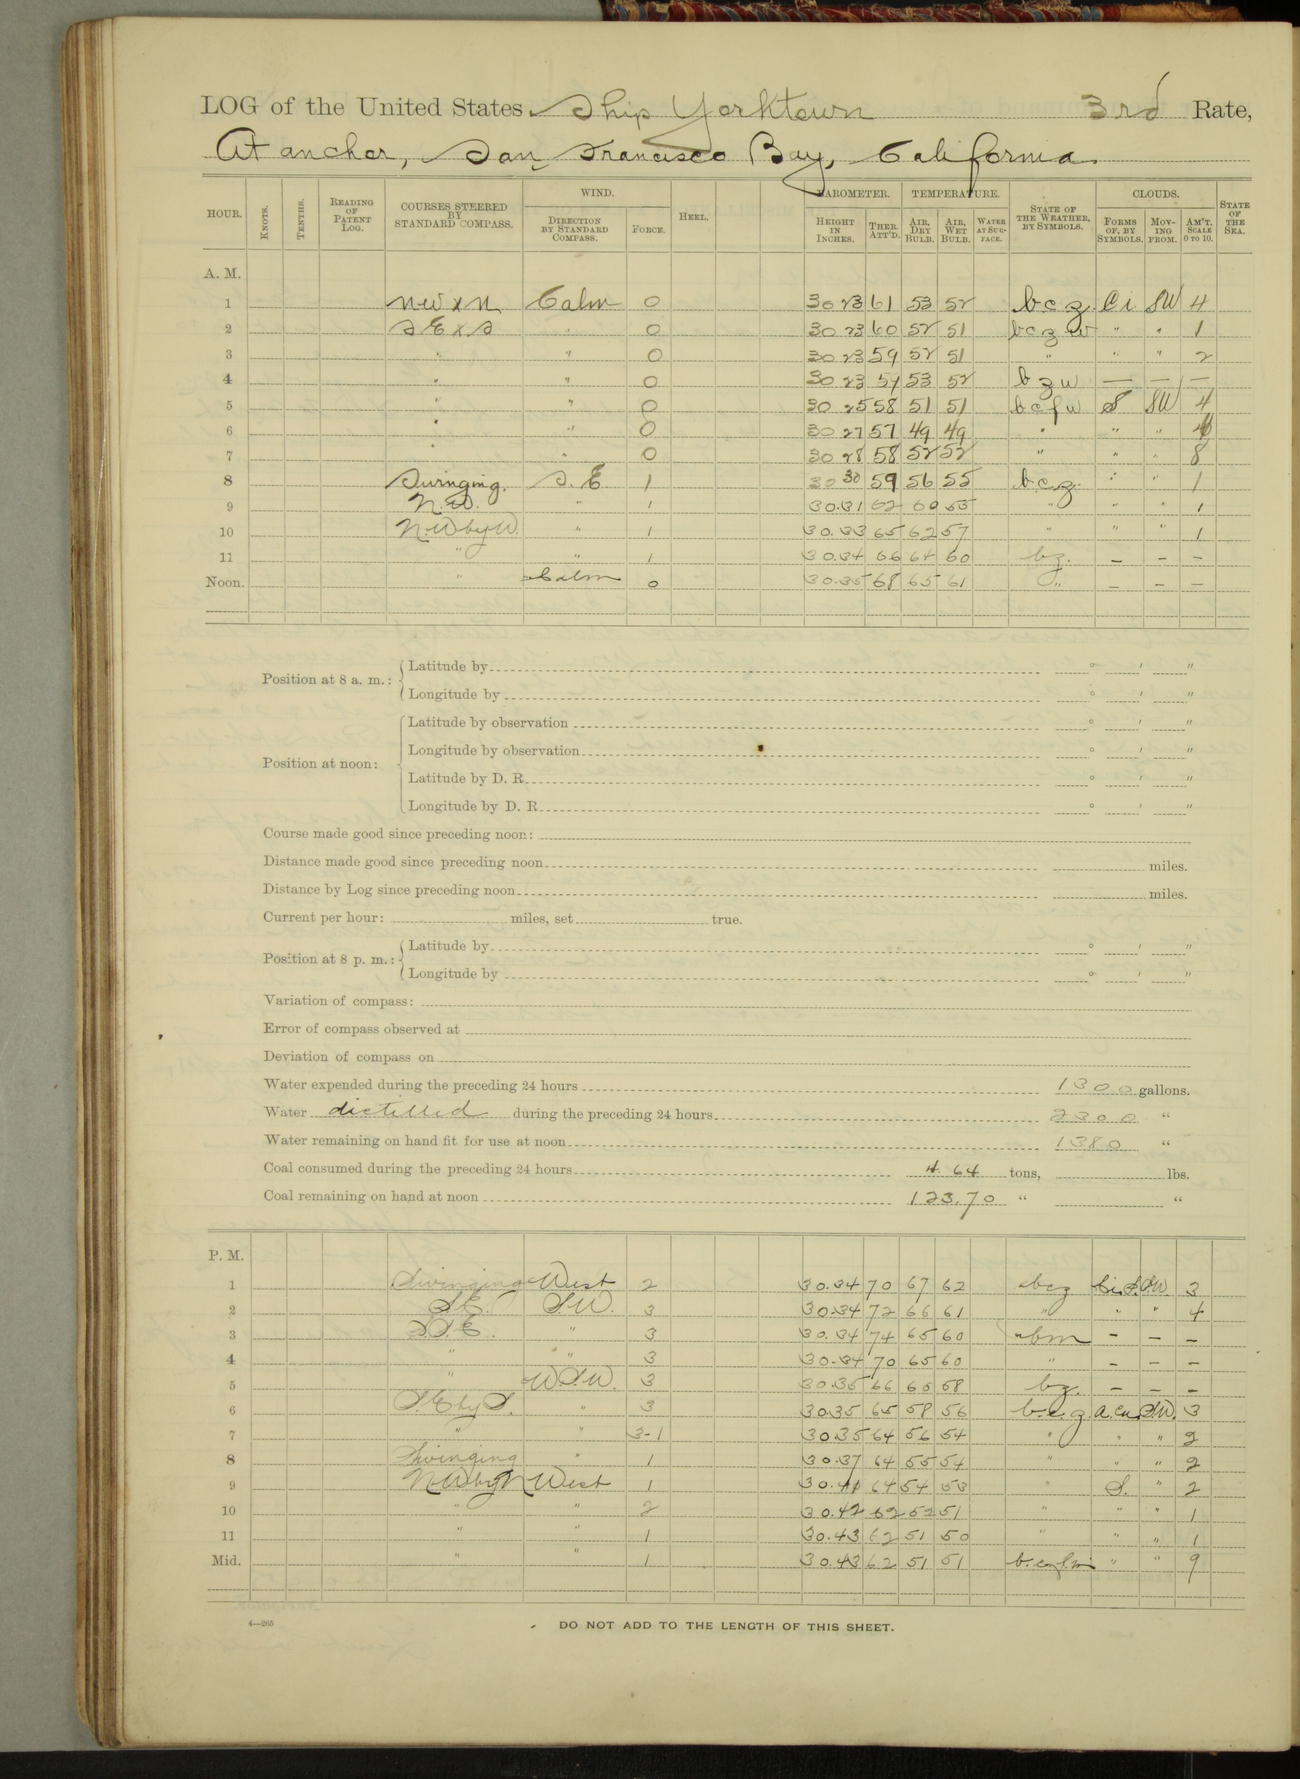 LOG of the United States Ship Yorktown 3rd Rate,
At anchor, San Francisco Bay, California.
HOUR. KNOTS. TENTHS. READING OF PATENT LOG. COURSES STEERED BY STANDARD COMPASS. WIND. DIRECTION BY STANDARD COMPASS. FORCE. HEEL. BAROMETER. HEIGHT IN INCHES. THER. ATT'D. TEMPERATURE. AIR, DRY BULB. AIR, WET BULB. WATER AT SURFACE. STATE OF THE WEATHER, BY SYMBOLS. CLOUDS. FORMS OF, BY SYMBOLS. MOVING FROM. AM'T, SCALE 0 TO 10. STATE OF THE SEA.
A. M.
1 NW x N Calm 0 30 23 61 53 52 b c z Ci SW 4
2 S E x S " 0 30 23 60 52 51 b c z w " " 1
3 " " 0 30 23 59 52 51 " " " 2
4 " " 0 30 23 59 53 52 b z w — — —
5 " " 0 30 25 58 51 51 b c f w S SW 4
6 " " 0 30 27 57 49 49 " " "
7 " " 0 30 28 58 52 52 " " " 8
8 Swinging. S. E. 1 30 30 59 56 55 b c z. " " 1
9 N. W. " 1 30.31 62 60 55 " " " 1
10 N. W by W. " 1 30.33 65 62 57 " " " 1
11 " " 1 30.34 66 64 60 bz. – – –
Noon. " Calm 0 30.35 68 65 61 " – – –
Position at 8 a. m.: Latitude by ° ′ ″
Longitude by ° ′ ″
Position at noon: Latitude by observation ° ′ ″
Longitude by observation ° ′ ″
Latitude by D. R. ° ′ ″
Longitude by D. R. ° ′ ″
Course made good since preceding noon:
Distance made good since preceding noon miles.
Distance by Log since preceding noon miles.
Current per hour: miles, set true.
Position at 8 p. m.: Latitude by ° ′ ″
Longitude by ° ′ ″
Variation of compass:
Error of compass observed at
Deviation of compass on
Water expended during the preceding 24 hours 1300 gallons.
Water distilled during the preceding 24 hours 2300 "
Water remaining on hand fit for use at noon 1380 "
Coal consumed during the preceding 24 hours 4.64 tons, lbs.
Coal remaining on hand at noon 123.70 " "
P. M.
1 Swinging West 2 30.34 70 67 62 bcz Ci.S. S.W. 3
2 S.E. S.W. 3 30.34 72 66 61 " " " 4
3 S.S.E. " 3 30.34 74 65 60 bm – – –
4 " " 3 30.34 70 65 60 " – – –
5 " W.S.W. 3 30.35 66 60 58 bz. – – –
6 S.E by S. " 3 30.35 65 58 56 b.c.z. A.Cu. S.W. 3
7 " " 3-1 30.35 64 56 54 " " " 2
8 Swinging " 1 30.37 64 55 54 " " " 2
9 N.W by N West 1 30.41 64 54 53 " S. " 2
10 " " 2 30.42 62 52 51 " " " 1
11 " " 1 30.43 62 51 50 " " " 1
Mid. " " 1 30.43 62 51 51 " " 9
4—265
DO NOT ADD TO THE LENGTH OF THIS SHEET.